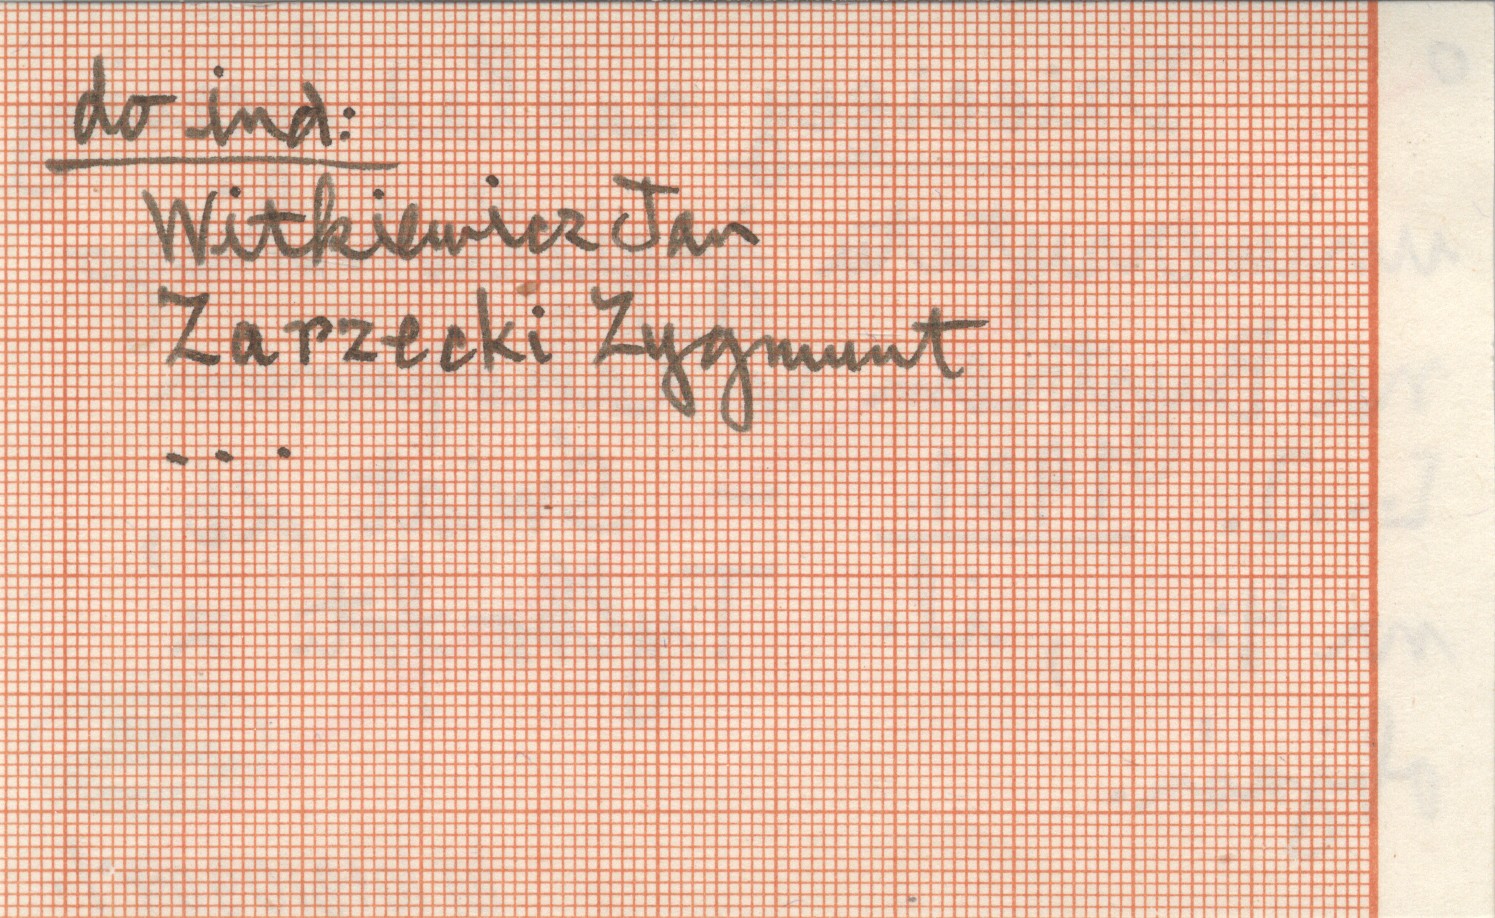 do ind:
Witkiewicz Jan
Zarzecki Zygmunt
...